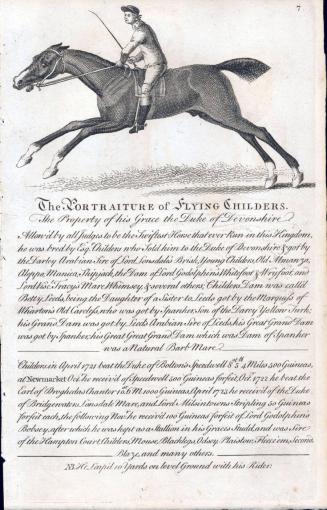 7
The PORTRAITURE of FLYING CHILDERS.
The Property of his Grace the Duke of Devonshire
Allow'd by all Judges to be the Swiftest Horse that ever Ran in this Kingdom,
he was bred by Esq. Childers who Sold him to the Duke of Devonshire & got by
the Darley Arabian Sire of Lord Lonsdale's Brisk, Young Childers, Old Almanza,
Aleppo, Manica, Hipjack, the Dam of Lord Godolphin's Whitefoot & Wryfoot, and
Lord Vis: Tracy's Mare Whimsey, & several others; Childers Dam was call'd
Betty Leeds, being the Daughter of a Sister to Leeds got by the Marquiss of
Wharton's Old Careless, who was got by Spanker, Son of the Darcy Yellow Turk;
his Gran Dam was got by Leeds Arabian Sire of Leeds, his Great Gran Dam
was got by Spanker, his Great Great Gran Dam which was Dam of Spanker
was a Natural Barb Mare.
Childers in April 1721 beat the Duke of Bolton's Speedwell 8 St. 5 lb 4 Miles 500 Guineas,
at Newmarket Oct. he receiv'd of Speedwell 500 Guineas forfeit, Oct. 1722 he beat the
Earl of Drogheda's Chanter 10 St. 6 M. 1000 Guineas, April 1723 he receiv'd of the Duke
of Bridgewaters, Lonsdale Mare, and Lord Milsintown's Stripling 50 Guineas
forfeit each, the following Nov. he receiv'd 100 Guineas forfeit of Lord Godolphin's
Bobsey, after which he was kept as a Stallion in his Graces Studd, and was Sire
of the Hampton Court Childers, Mouse, Blacklegs, Odsey, Plaistow, Fleece'em, Second,
Blaze, and many others.
NB. He Leap'd 10 Yards on level Ground with his Rider.